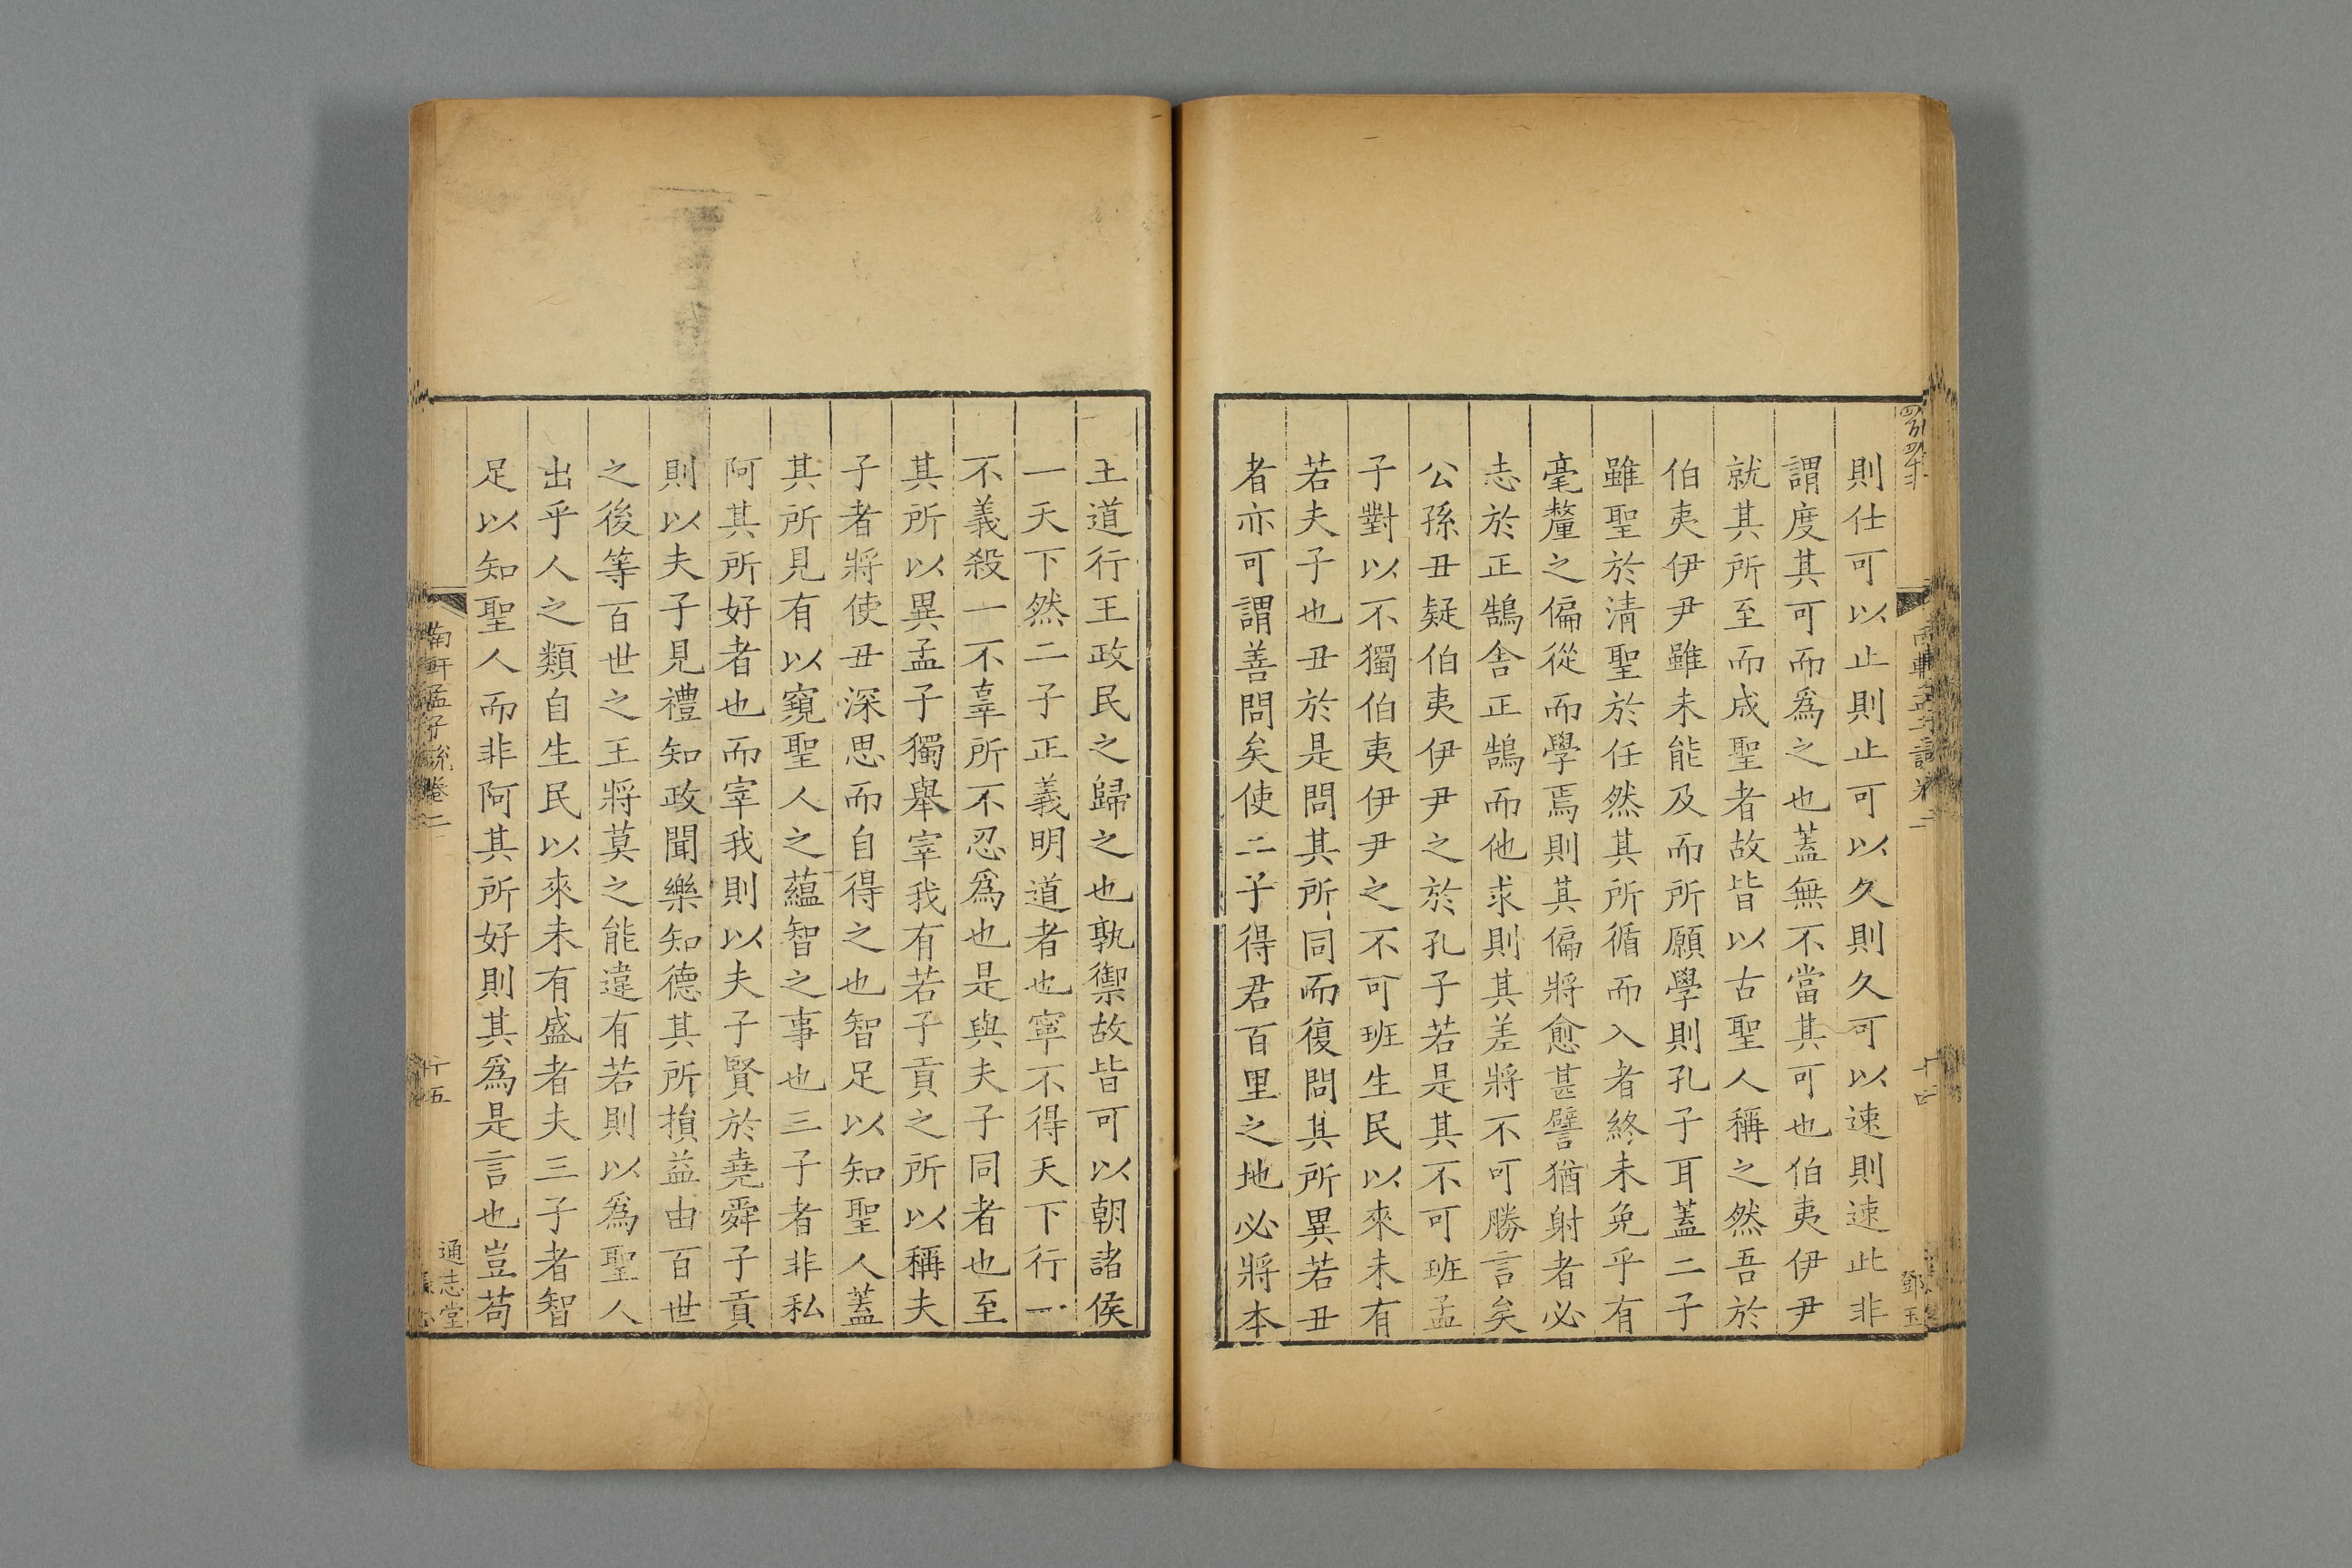 則仕可以止則止可以久則久可以速則速此非
謂度其可而爲之也蓋無不當其可也伯夷伊尹
就其所至而成聖者故皆以古聖人稱之然吾於
伯夷伊尹雖未能及而所願學則孔子耳蓋二子
雖聖於清聖於任然其所循而入者終未免乎有
毫釐之偏從而學焉則其偏將愈甚譬猶射者必
志於正鵠舍正鵠而他求則其差將不可勝言矣
公孫丑疑伯夷伊尹之於孔子若是其不可班孟
子對以不獨伯夷伊尹之不可班生民以來未有
若夫子也丑於是問其所同而復問其所異若丑
者亦可謂善問矣使二子得君百里之地必將本
王道行王政民之歸之也孰禦故皆可以朝諸侯
一天下然二子正義明道者也寧不得天下行一
不義殺一不辜所不忍爲也是與夫子同者也至
其所以異孟子獨舉宰我有若子貢之所以稱夫
子者將使丑深思而自得之也智足以知聖人蓋
其所見有以窺聖人之蘊智之事也三子者非私
阿其所好者也而宰我則以夫子賢於堯舜子貢
則以夫子見禮知政聞樂知德其所損益由百世
之後等百世之王將莫之能違有若則以爲聖人
出乎人之類自生民以來未有盛者夫三子者智
足以知聖人而非阿其所好則其爲是言也豈苟
南軒孟子說卷二
十五
通志堂